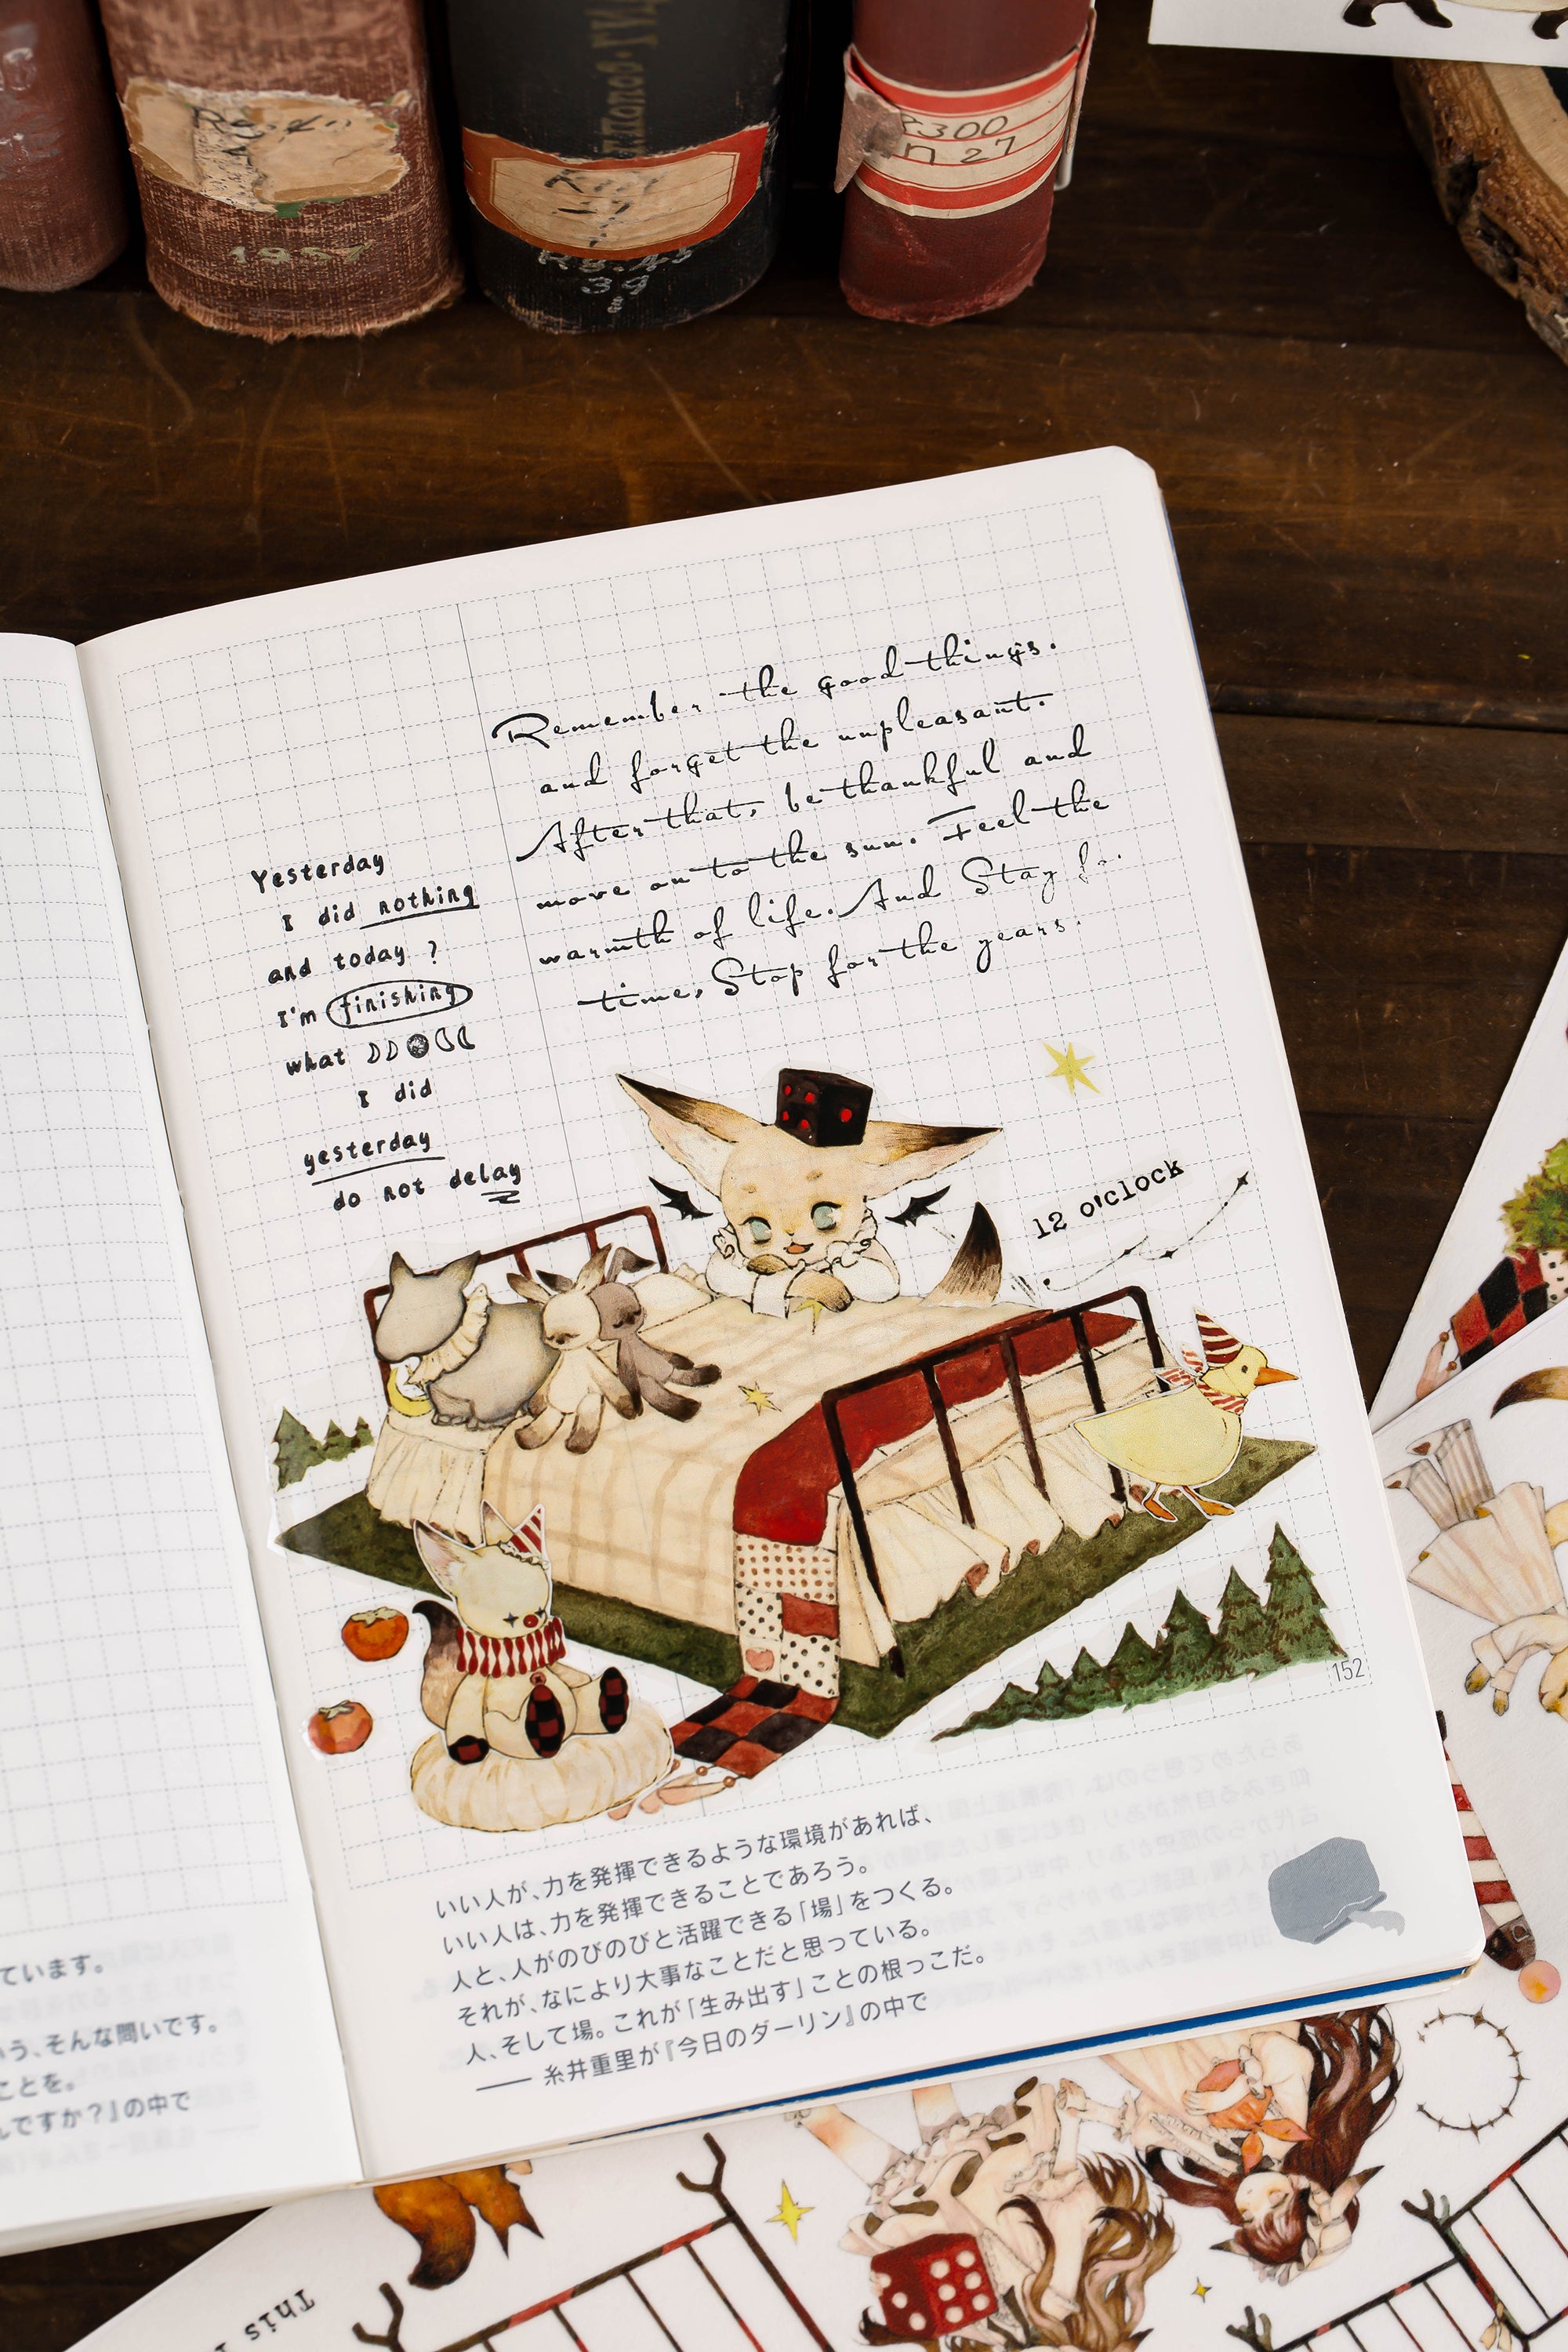 1957
R3.43
300
n 27
Remember the good things.
and forget the unpleasant.
After that, be thankful and
move on to the sun. Feel the
warmth of life. And Stay fo.
time, Stop for the years.
Yesterday
I did nothing
and today ?
I'm finishing
what
I did
yesterday
do not delay
12 O'clock
152
いい人が、力を発揮できるような環境があれば、
いい人は、力を発揮できることであろう。
人と、人がのびのびと活躍できる「場」をつくる。
それが、なにより大事なことだと思っている。
人、そして場。これが「生み出す」ことの根っこだ。
── 糸井重里が『今日のダーリン』の中で
ています。
う、そんな問いです。
ことを。
んですか？』の中で
This